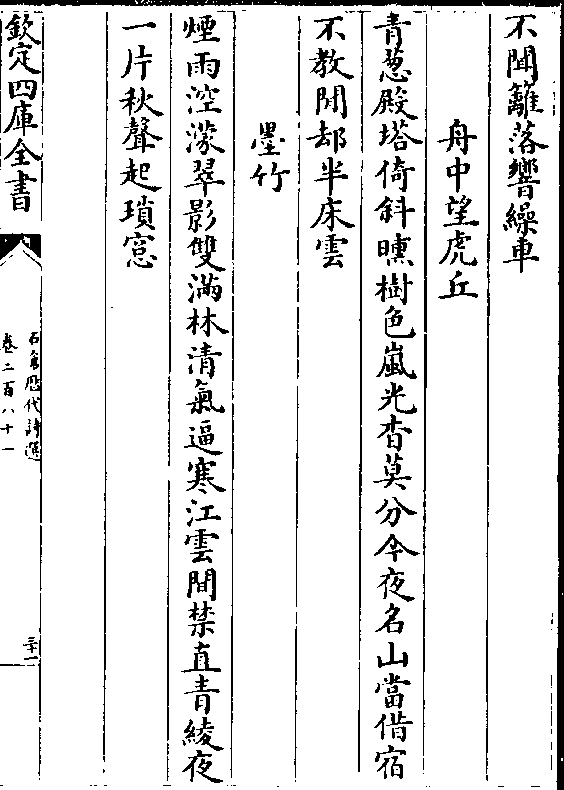 不聞籬落響繰車
舟中望虎丘
青葱殿塔倚斜曛樹色嵐光杳莫分今夜名山當借宿
不教閒却半床雲
墨竹
煙雨涳濛翠影雙滿林清氣逼寒江雲間禁直青綾夜
一片秋聲起瑣窓
欽定四庫全書
石倉歴代詩選
卷二百八十一
三十一